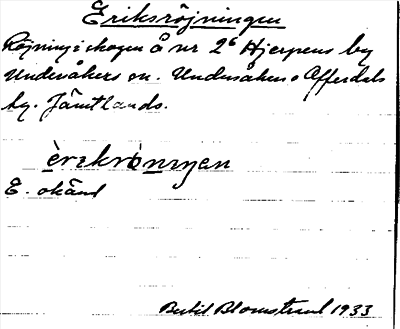 Eriksröjningen
Röjning i skogen å nr 2⁶ Hjerpens by
Undersåkers sn. Undersåkers o Offerdals
tg. Jämtlands.
èrikròningen
E. okänd
Bertil Blomstrand 1933